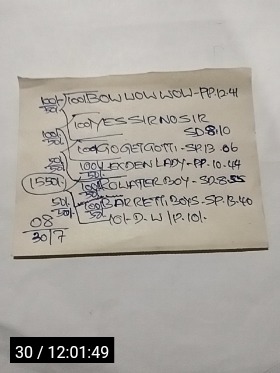 100/- 100/BOW WOW WOW-PP.12.41
50/-
100/YES SIR NO SIR
SD.8.10
100/-
50/-
100/GOGETGOTTI-SP.13.06
50/-
100/LEXDEN LADY-PP.10.44
50/-
1550/-
100/ WATER BOY-SD.8.55
50/-
50/-
50/-
100/BARRETTI BOYS-SP.13.40
50/-
10/-D.W/12.10/-
08
30/7
30 / 12:01:49